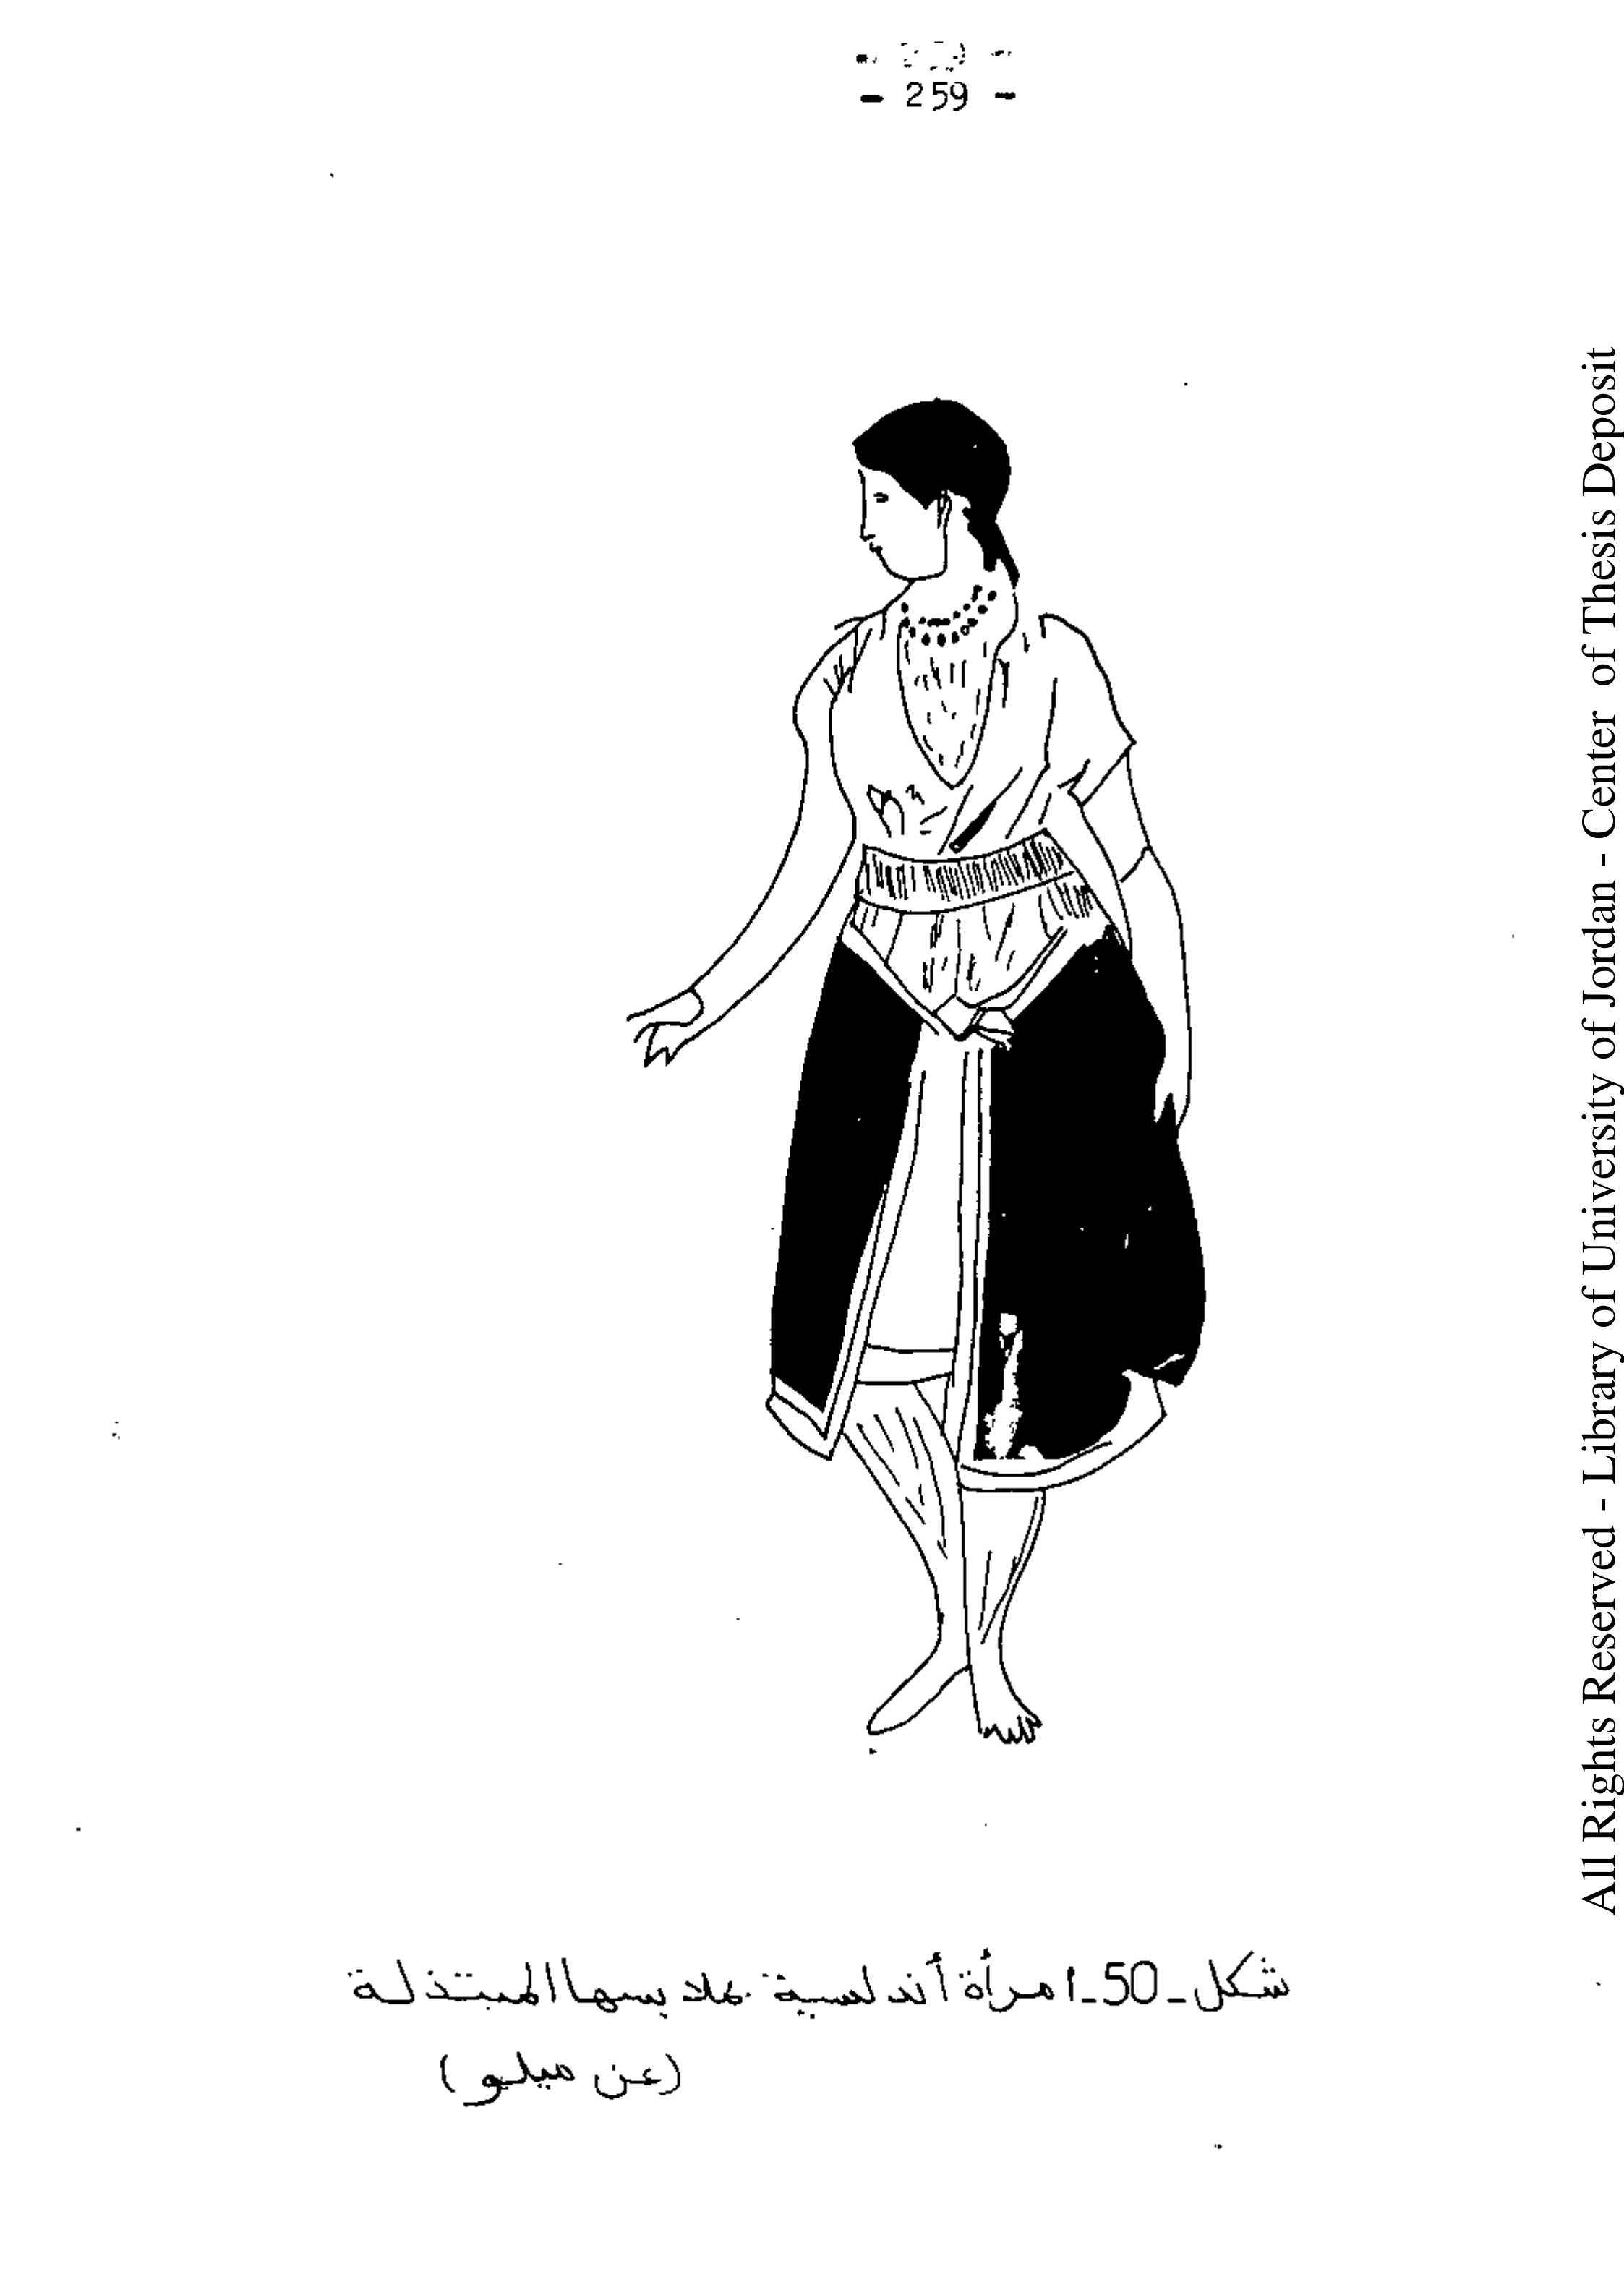 - 259 -
شكل_50_امرأة أندلسية بملابسها المبتذلة
(عن ميليو)
All Rights Reserved - Library of University of Jordan - Center of Thesis Deposit